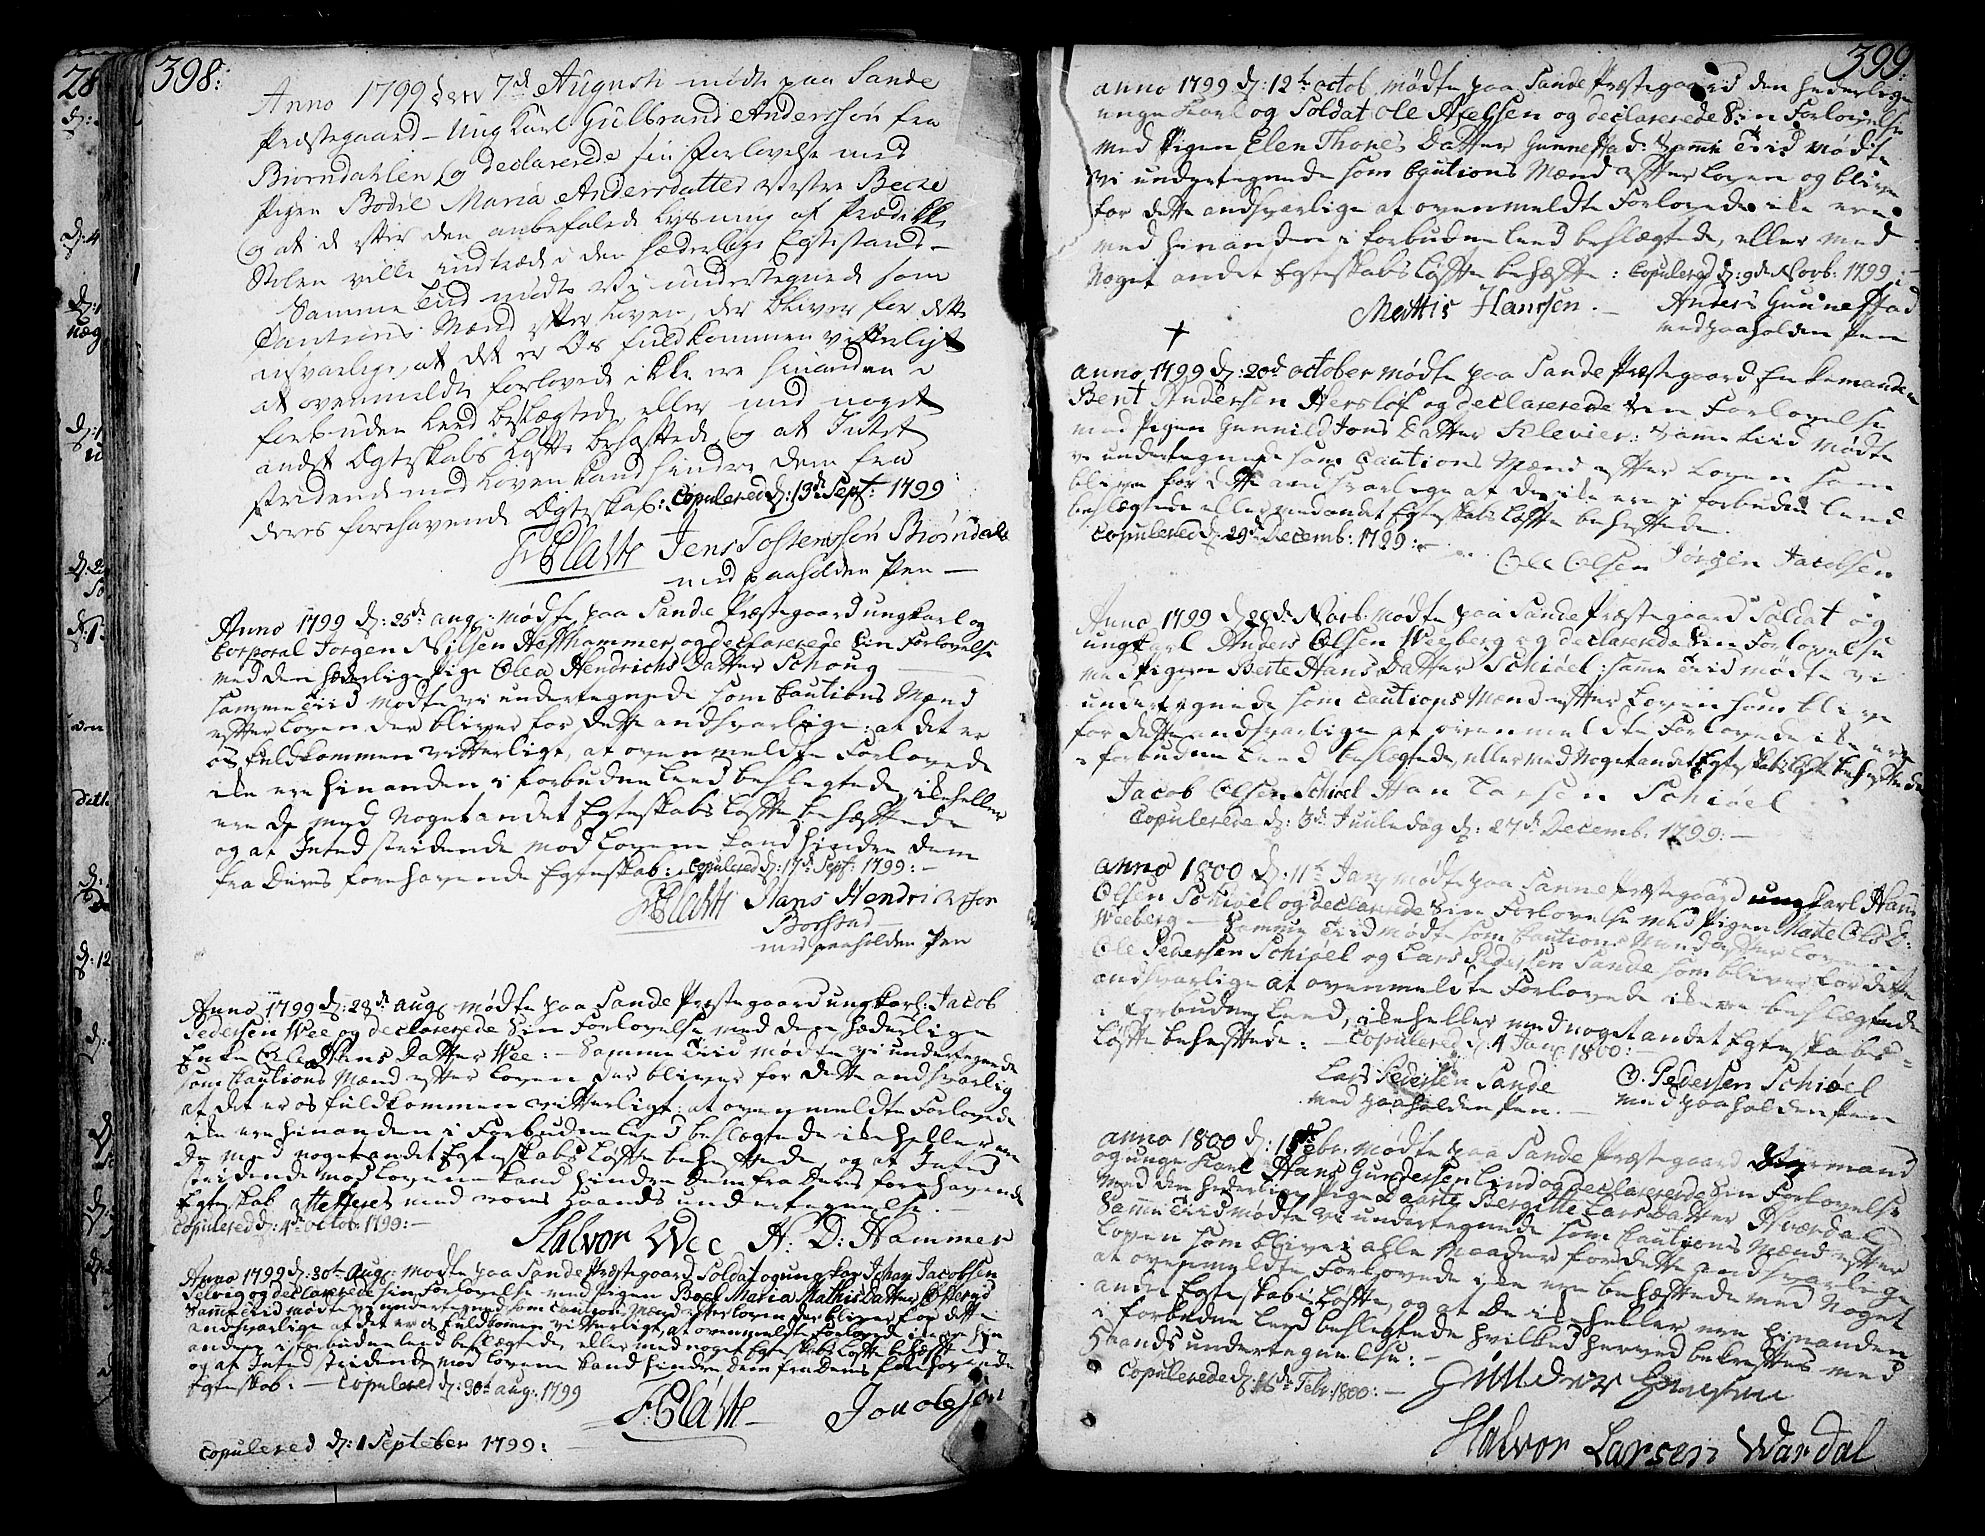 398:
Anno 1799 den 7de Augusti mødte paa Sande
Præstegaard – Ung Karl Gulbrand Anderssøn fra
Biørndahlen og declarerede sin Forlovelse med
Pigen Bodil Maria Andersdatter Vestre Becke
og at de efter den anbefalede Lysning af Prædike
Stolen ville indtræde i den hæderlige Egtestand –
Samme Tiid mødte Vi undertegnede som
Cautions Mænd efter Loven, der bliver for dette
ansvarlige, at det er Os fuldkommen vitterligt
at ovenmeldte forlovede ikke ere hinanden i
forbuden Leed beslægtede, eller med noget
andet Ægteskabs Løfte behæftede, og at Intet
stridende mod Loven kand hindre dem fra
deres forehavende Ægteskab: copulered d: 13de Sept: 1799
Jens Tostenssøn Biørndale
med paaholden Pen –
Anno 1799 d: 25de aug: mødte paa Sande Præstegaard ungkarl og
Corporal Jørgen Nilsen Hefthammer og declarerede Sin Forlovelse
med den hæderlige Pige Olea Hendrichs Datter Schoug
samme Tiid mødte vi undertegnede som Cautions Mænd
efter Loven der bliver for dette andsvarlige: at det er
os fuldkommen vitterligt, at ovenmeldte Forlovede
ike ere hinanden i forbudne Leed beslegtede, ike heller
ere de med Noget andet Egteskabs Løfte behæftede
og at Inted stridende mod Lovene kand hindre dem
fra Deres forehavende Egteskab: copulered d: 17de Sept: 1799: –
Hans Hendrichsen
med paaholden Pen
Anno 1799 d: 28de aug: mødte paa Sande Præstegaard ungkarl: Jacob
Pedersen Wee og declarerede Sin Forlovelse med den hæderlige
Enke Ole Hans Datter Wee: – Samme Tiid mødte vi undertegnede
som Cautions Mænd efter Loven der bliver for dette andsvarlig
at det er os fuldkommen vitterligt: at ovenmeldte Forlovede
ike ere hinanden i Forbudne Leed beslægtede ike heller ere
de med noget andet Egteskabs Løfte behæftede, og at Inted
stridende mod Lovene kand hindre dem fra Deres forehavende
Egteskab attesteres med vores Haands undertegnelse. –
copulered d: 4de octobr 1799: –
Halvor Wee H: D: Hammer
Anno 1799 d: 30te Aug: mødte paa Sande Præstegaard Soldat og ungkar Johan Jacobsen
Selvig og declarerede sin Forlovelse med Pigen Boel Maria Mathis Datter
Samme Tiid mødte vi undertegned som Cautions Mænd efter Loven der bliver for dette
andsvarlige at det er os fuldkomen vitterligt, at ovenmeldte Forloved ike ere hin
anden i forbudne Leed beslegtede eller med noget Egteskabs Løfte behæftede
og at Inted stridende mod Lovene kand hindre dem fra Deres forehavende
Egteskab: – copulered d: 30te aug: 1799
Jon olesen
copulered d: 1 September 1799:
399:
anno 1799 d: 12te octob. mødte paa Sande Præstegaard den hederlige
unge Karl og Soldat Ole Axelsen og declarerede Sin Forlovelse
med Pigen Elen Thores Datter Gunnestad: Samme Tiid mødte
vi undertegnede som Cautions Mænd efter Loven og blive
for dette andsvarlige at ovenmeldte Forlovede ike ere
med hinanden i forbudne leed beslægtede, eller med
Noget andet Egteskabs Løfte behæftte: Copulered d: 9de Novb: 1799: –
Mattis Hanssen. – Anders Gunnestad
med paaholden Pen
anno 1799 d: 20de october mødte paa Sande Præstegaard Enkemanden
Bent Andersen Herslof og declarerede Sin Forlovelse
med Pigen Gunnild Jons Datter Klevier: Same Tiid mødte
vi undertegnede som Cautions Mænd efter Loven som
blive for dette andsvarlege at de ike ere i forbuden leed
beslegtede eller med andet Egteskabs Løfte behæftede.
copulered d: 29de Decemb: 1799: –
Ole Olsen Jørgen Jacobsen
Anno 1799 d: Novb. mødte paa Sande Præstegaard Soldat og
ungkarl Anders Olsen Weeberg og declarerede Sin Forlovelse
med Pigen Berte Hans Datter Schiøel: Same Tiid mødte vi
undertegnede som Cautions Mænd efter Loven som blive
for dette andsvarlige at ovenmeldte Forlovede ike ere
i forbudne Leed beslegtede, eller med Noget andet Egteskabs Løfte behæftede
Jacob Olsen Schiøel Han Larsen Schiøel
Copulerede d: 3de Juuledag d: 27de Decemb: 1799: –
anno 1800 d: 11te Jan: mødte paa Sanne Præstegaard ungkarl Hans
Olsen Schiøel og declarerede Sin Forlovelse med Pigen Marte Ols D:
Weeberg – Samme Tiid mødte som Cautions Mænd efter Loven
Ole Pedersen Schiøel og Lars Pedersen Sande som bliver for dette
andsvarlige at ovenmeldte Forlovede ike ere beslægtede
i forbuden leed, ike heller med noget andet Egteskabs
Løfte behæftede: – copulered d: Jan: 1800: –
Lars Pedersen Sande O. Pedersen Schiøel
med paaholden Pen. – med paaholden Pen
anno 1800 d: Febr: mødte paa Sande Præstegaard
og unge Karl Hans Gundersen Lind og declarerede Sin Forlovelse
med den hederlige Pige Maarte Bergitte Lars Datter Hværdal
Samme Tiid mødte vi undertegnede som Cautions Mænd efter
Loven som blive i alle Maader for dette andsvarlege
at ovenmeldte Forlovede ike ere behæftede med Noget
andet Egteskabs Løfte, og at de ike heller ere hinanden
i forbudne leed beslegtede hvilked herved bekreftes med
Haands undertegnelse: –
copulerede d: 16de Febr 1800: –
Halvor Larsen Wardal